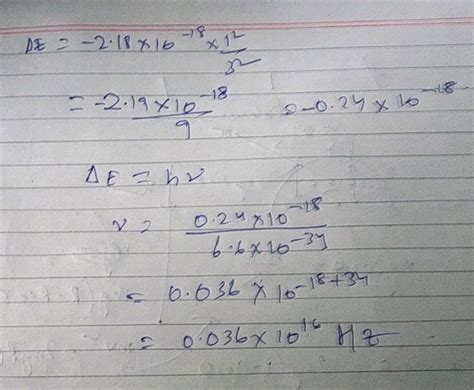 ΔE = -2.18 × 10^-18 × 1²/3²
= -2.19 × 10^-18 / 9 = -0.24 × 10^-18
ΔE = hν
ν = 0.24 × 10^-18 / 6.6 × 10^-34
= 0.036 × 10^-18+34
= 0.036 × 10^16 Hz